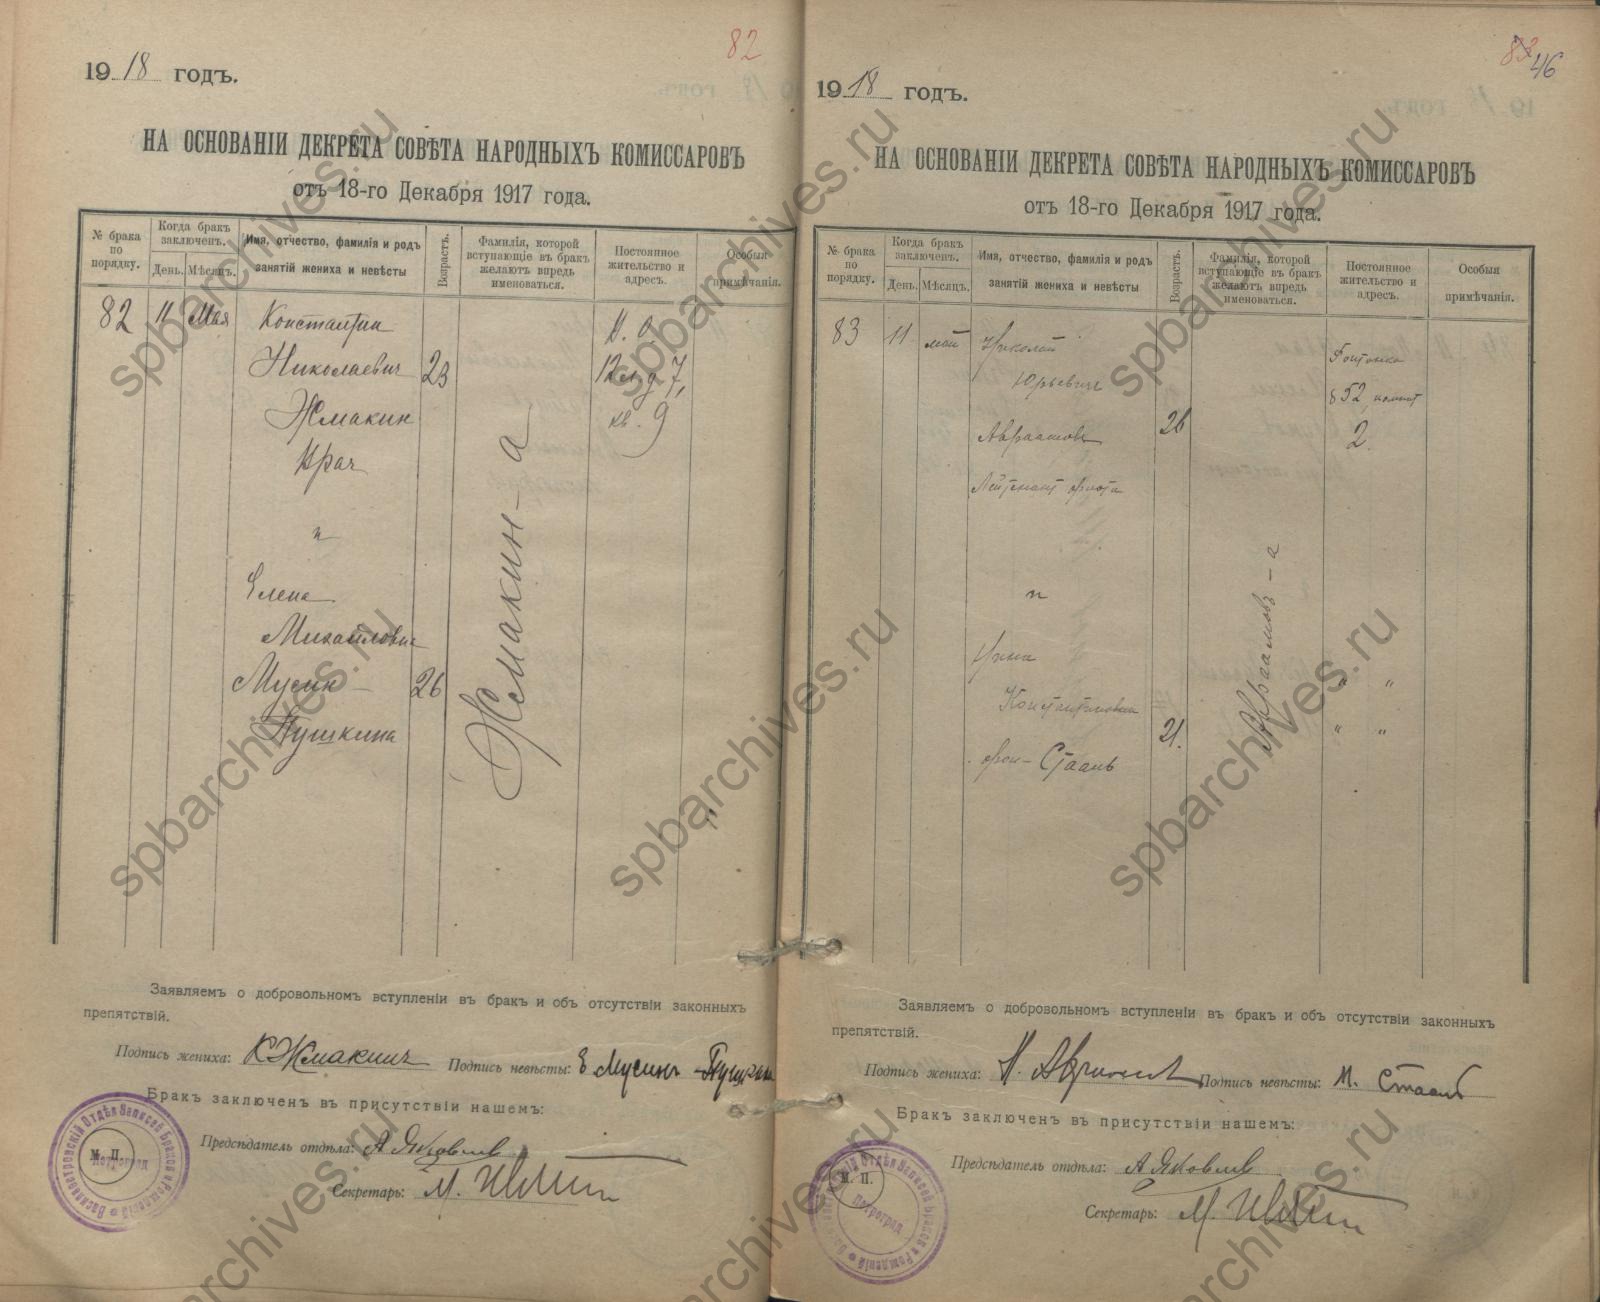 82
19 18 годъ.
НА ОСНОВАНІИ ДЕКРЕТА СОВѢТА НАРОДНЫХЪ КОМИССАРОВЪ
отъ 18-го Декабря 1917 года.
№ брака по порядку.
Когда бракъ заключенъ.
День. Мѣсяцъ.
Имя, отчество, фамилія и родъ занятій жениха и невѣсты
Возрастъ.
Фамилія, которой вступающіе въ бракъ желаютъ впредь именоваться.
Постоянное жительство и адресъ.
Особыя примѣчанія.
82 11 Мая Константин
Николаевич 23
Жмакин
Врач
и
Елена
Михайловна
Мусин- 26
Пушкина
Жмакин-а
В. О.
12 л. д 7,
кв. 9
Заявляемъ о добровольномъ вступленіи въ бракъ и объ отсутствіи законныхъ
препятствій.
Подпись жениха: К Жмакинъ Подпись невѣсты: Е Мусинъ-Пушкина
Бракъ заключенъ въ присутствіи нашемъ:
Предсѣдатель отдѣла: А Яковлев
Секретарь: М.
М. П.
Василеостровскій Отдѣл Записей Браков и Рожденій
Петроград
83 46
19 18 годъ.
НА ОСНОВАНІИ ДЕКРЕТА СОВѢТА НАРОДНЫХЪ КОМИССАРОВЪ
отъ 18-го Декабря 1917 года.
№ брака по порядку.
Когда бракъ заключенъ.
День. Мѣсяцъ.
Имя, отчество, фамилія и родъ занятій жениха и невѣсты
Возрастъ.
Фамилія, которой вступающіе въ бракъ желаютъ впредь именоваться.
Постоянное жительство и адресъ.
Особыя примѣчанія.
83 11 май Николай
Юрьевич
Авраамовъ 26
Лейтенант флота
и
Константиновна
21.
фон-Стааль
Авраамовъ-а
Фонтанка
52, комнат
2.
" "
" "
Заявляемъ о добровольномъ вступленіи въ бракъ и объ отсутствіи законныхъ
препятствій.
Подпись жениха: Н. Авраамов Подпись невѣсты: Стааль
Бракъ заключенъ въ присутствіи нашемъ:
Предсѣдатель отдѣла: А Яковлев
Секретарь: М.
М. П.
Отдѣл Записей Браков и Рожденій
Петроград
spbarchives.ru